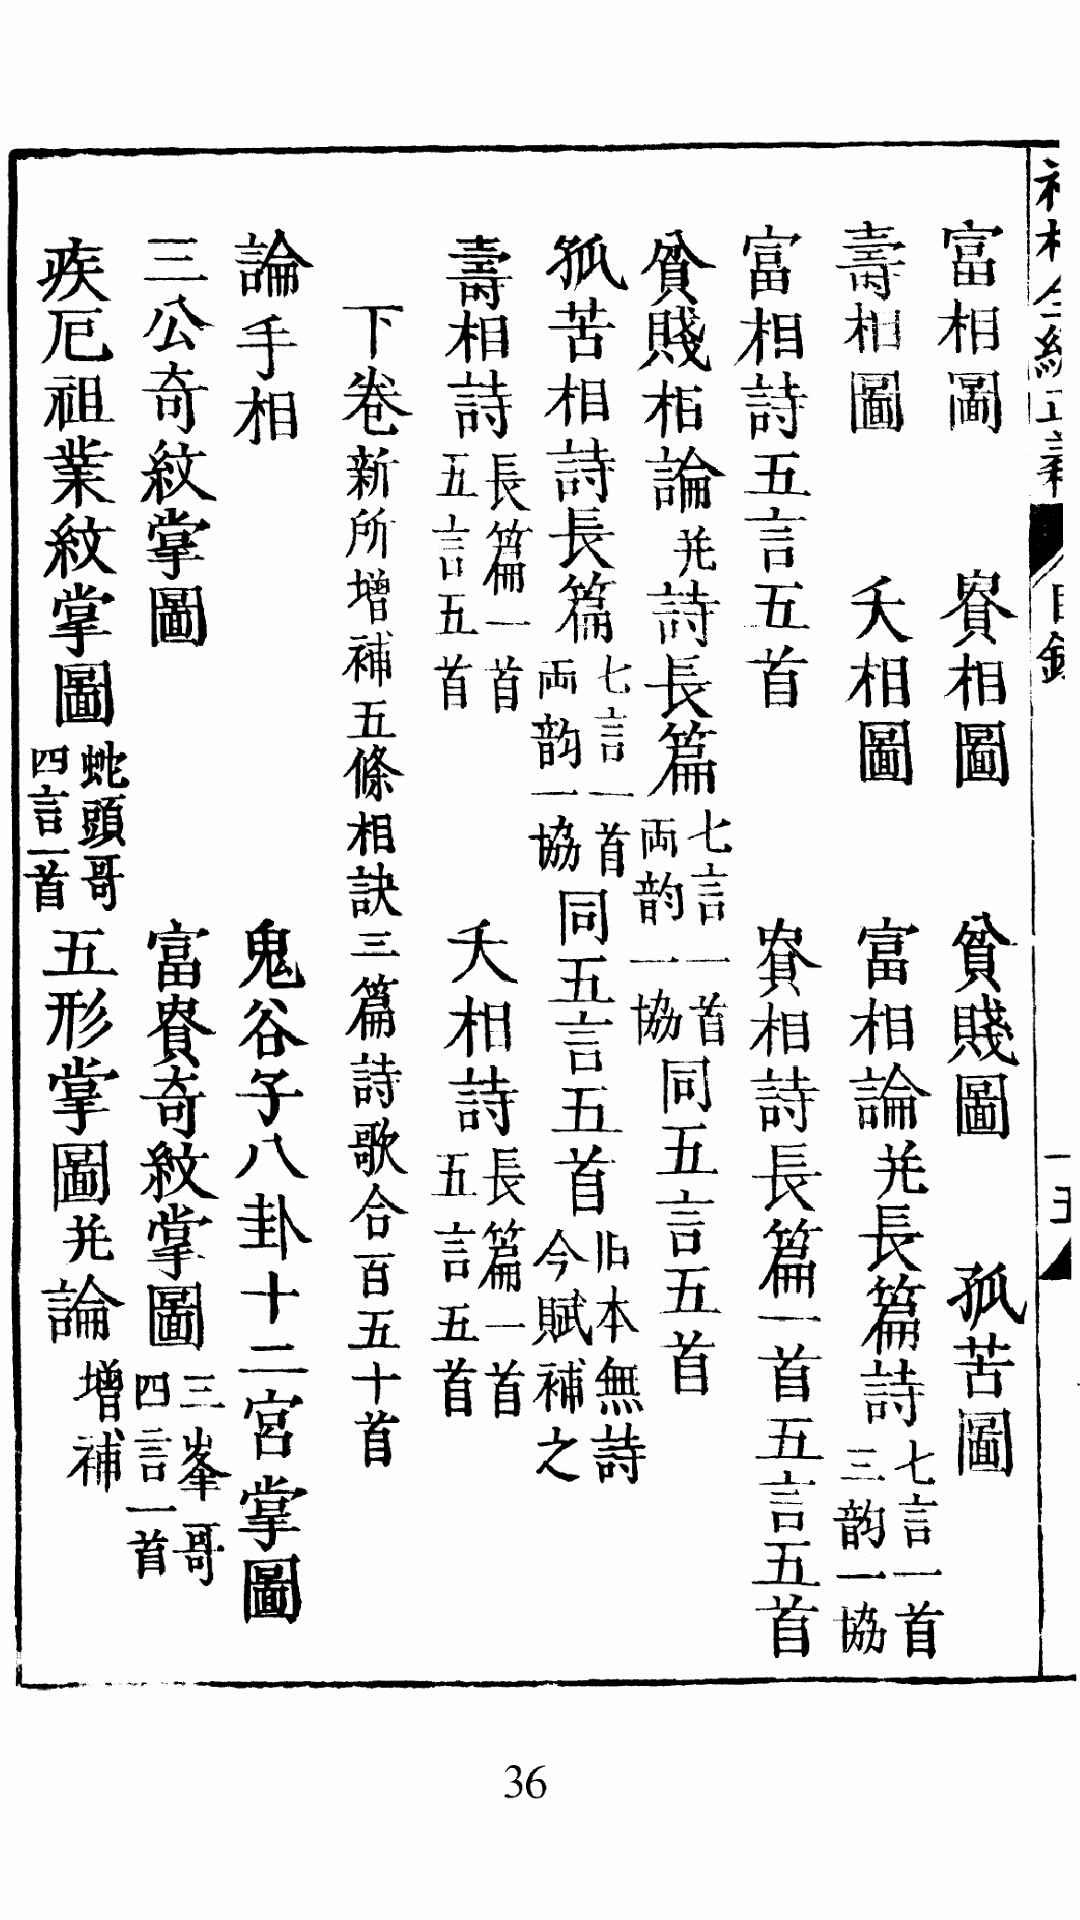 神相全編正義 目録 一 五
富相圖 貴相圖 貧賤圖 孤苦圖
壽相圖 夭相圖 富相論并長篇詩 七言一首 三韵一協
富相詩五言五首 貴相詩長篇一首五言五首
貧賤相論并詩長篇 七言一首 両韵一協 同五言五首
孤苦相詩長篇 七言一首 両韵一協 同五言五首 旧本無詩 今賦補之
壽相詩 長篇一首 五言五首 夭相詩 長篇一首 五言五首
下卷新所增補五條相訣三篇詩歌合百五十首
論手相 鬼谷子八卦十二宮掌圖
三公奇紋掌圖 富貴奇紋掌圖 三峯哥 四言一首
疾厄祖業紋掌圖 蛇頭哥 四言一首 五形掌圖并論 增補
36